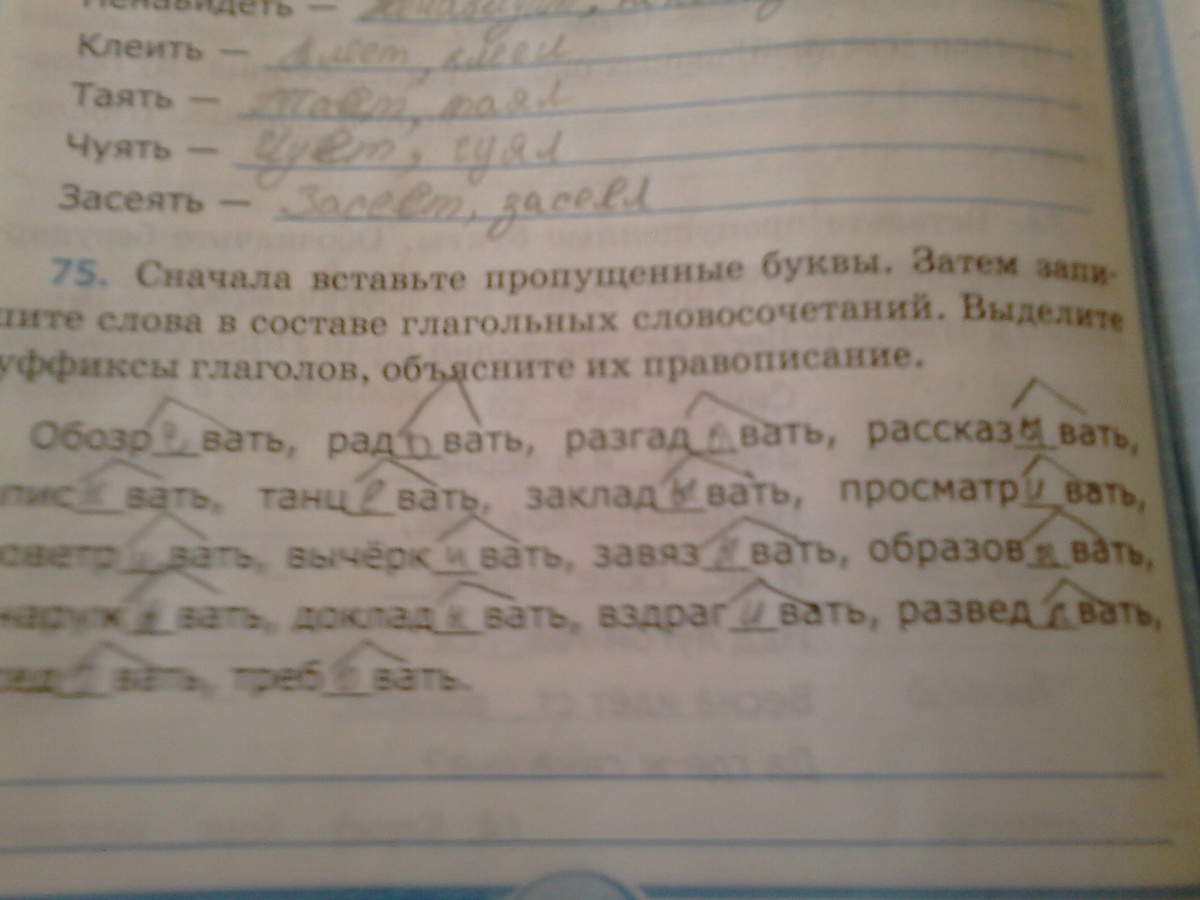 Ненавидеть —
Клеить — клеет, клеил
Таять — Тает, таял
Чуять — Чует, чуял
Засеять — Засеет, засеел
75. Сначала вставьте пропущенные буквы. Затем запи-
шите слова в составе глагольных словосочетаний. Выделите
уффиксы глаголов, объясните их правописание.
Обозр_вать, радовать, разгад_вать, рассказывать,
пис_вать, танцевать, закладывать, просматривать,
оветр_вать, вычёркивать, завяз_вать, образов_вать,
наруж_вать, доклад_вать, вздрагивать, развед_вать,
вать, треб_вать.